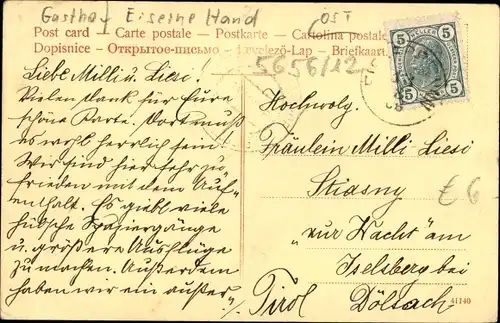 Gasthof Eiserne Hand
OST
Post card – Carte postale – Postkarte – Cartolina postale
Dopisnice – Открытое письмо – Levelező-Lap – Briefkaart
5656/12
5 HELLER 5
5 5
Liebe Milli u. Liesi!
Vielen Dank für Eure
schöne Karte. Dort muß
es wohl herrlich sein.
Wir sind hier sehr zu-
frieden mit dem Auf-
enthalt. Es giebt viele
hübsche Spaziergänge
u. größere Ausflüge
zu machen. Außerdem
haben wir ein außer-
Hochwolg.
Fräulein Milli Liesi
Stiasny
"zur Wacht" am
Iselsberg bei
Dölsach
Tirol
£6-
41140